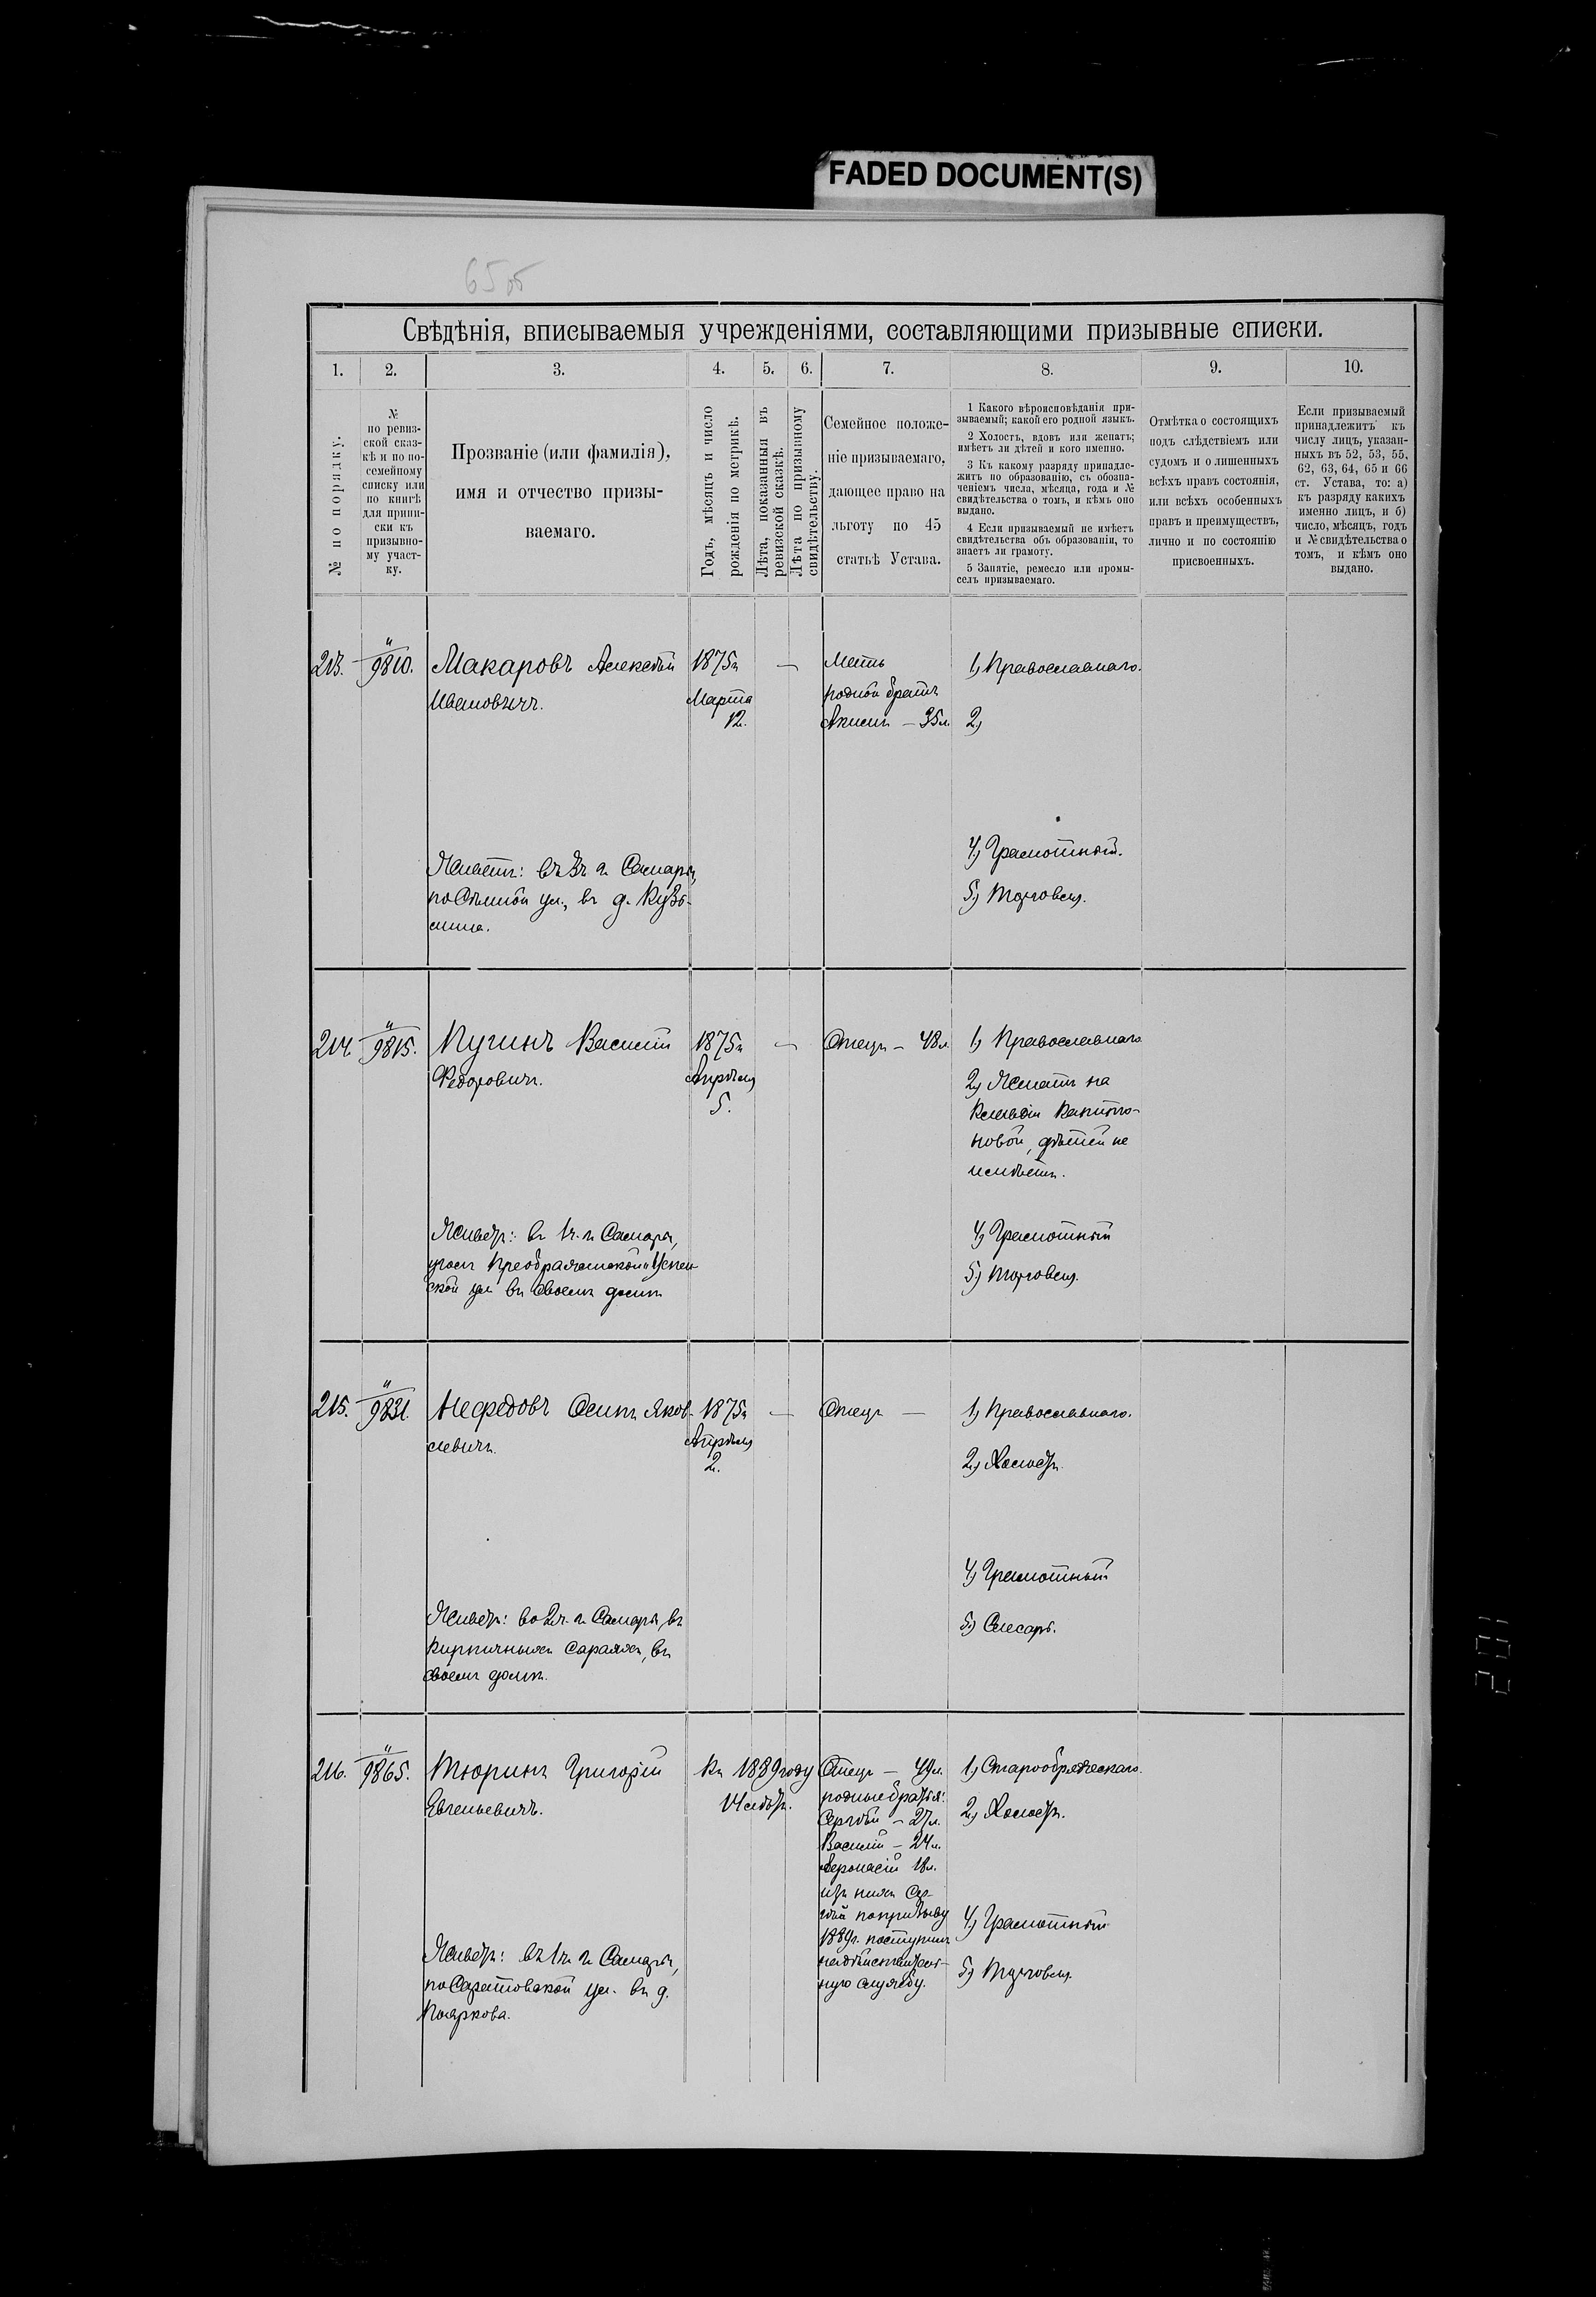 FADED DOCUMENT(S)
65 об
Свѣдѣнія, вписываемыя учрежденіями, составляющими призывные списки.
1. 2. 3. 4. 5. 6. 7. 8. 9. 10.
№ по порядку.
№
по ревиз-
ской сказ-
кѣ и по по-
семейному
списку или
по книгѣ
для припи-
ски къ
призывно-
му участ-
ку.
Прозваніе (или фамилія),
имя и отчество призы-
ваемаго.
Годъ, мѣсяцъ и число
рожденія по метрикѣ.
Лѣта, показанныя въ
ревизской сказкѣ.
Лѣта по призывному
свидѣтельству.
Семейное положе-
ніе призываемаго,
дающее право на
льготу по 45
статьѣ Устава.
1 Какого вѣроисповѣданія при-
зываемый; какой его родной языкъ.
2 Холостъ, вдовъ или женатъ;
имѣетъ ли дѣтей и кого именно.
3 Къ какому разряду принадле-
житъ по образованію, съ обозна-
ченіемъ числа, мѣсяца, года и №
свидѣтельства о томъ, и кѣмъ оно
выдано.
4 Если призываемый не имѣетъ
свидѣтельства объ образованіи, то
знаетъ ли грамоту.
5 Занятіе, ремесло или промы-
селъ призываемаго.
Отмѣтка о состоящихъ
подъ слѣдствіемъ или
судомъ и о лишенныхъ
всѣхъ правъ состоянія,
или всѣхъ особенныхъ
правъ и преимуществъ,
лично и по состоянію
присвоенныхъ.
Если призываемый
принадлежитъ къ
числу лицъ, указан-
ныхъ въ 52, 53, 55,
62, 63, 64, 65 и 66
ст. Устава, то: а)
къ разряду какихъ
именно лицъ, и б)
число, мѣсяцъ, годъ
и № свидѣтельства о
томъ, и кѣмъ оно
выдано.
213.
"
9810.
Макаровъ Алексѣй
Ивановичъ.
Живетъ: въ 3ч г. Самары,
по                    ул., въ д. Кузь-
мина.
1875г.
Марта
12.
—
Мать
родной братъ
Акимъ — 35л.
1) Православнаго.
2)
4) Грамотный.
5) Торговля.
214.
"
9815.
Пучинъ Василій
Федоровичъ.
Живетъ: въ 1ч. г. Самары,
уголъ Преображенской и Успен-
ской ул въ своемъ домѣ
1875г
Апрѣля
5.
—
Отецъ — 48л
1) Православнаго
2) Женатъ на
Клавдіи Капито-
новой, дѣтей не
имѣетъ.
4) Грамотный
5) Торговля.
215.
"
9831.
Нефедовъ Осипъ Яков-
левичъ.
Живетъ: во 2ч. г. Самары, въ
Кирпичныхъ сараяхъ, въ
своемъ домѣ.
1875г
Апрѣля
2.
—
Отецъ —
1) Православнаго.
2) Холостъ.
4) Грамотный
5) Слесарь.
216.
"
9865.
Тюринъ Григорій
Евгеньевичъ.
Живетъ: въ 1ч. г. Самары,
по Саратовской ул. въ д.
Пояркова.
Къ 1889 году
14 лѣтъ.
Отецъ — 49л.
родные братья:
Сергѣй — 27л.
Василій — 24л.
Афонасій 18л.
изъ нихъ Сер-
гѣй по призыву
1889г. поступилъ
на дѣйствитель-
ную службу.
1) Старообрядческаго.
2) Холостъ.
4) Грамотный
5) Торговля.
201